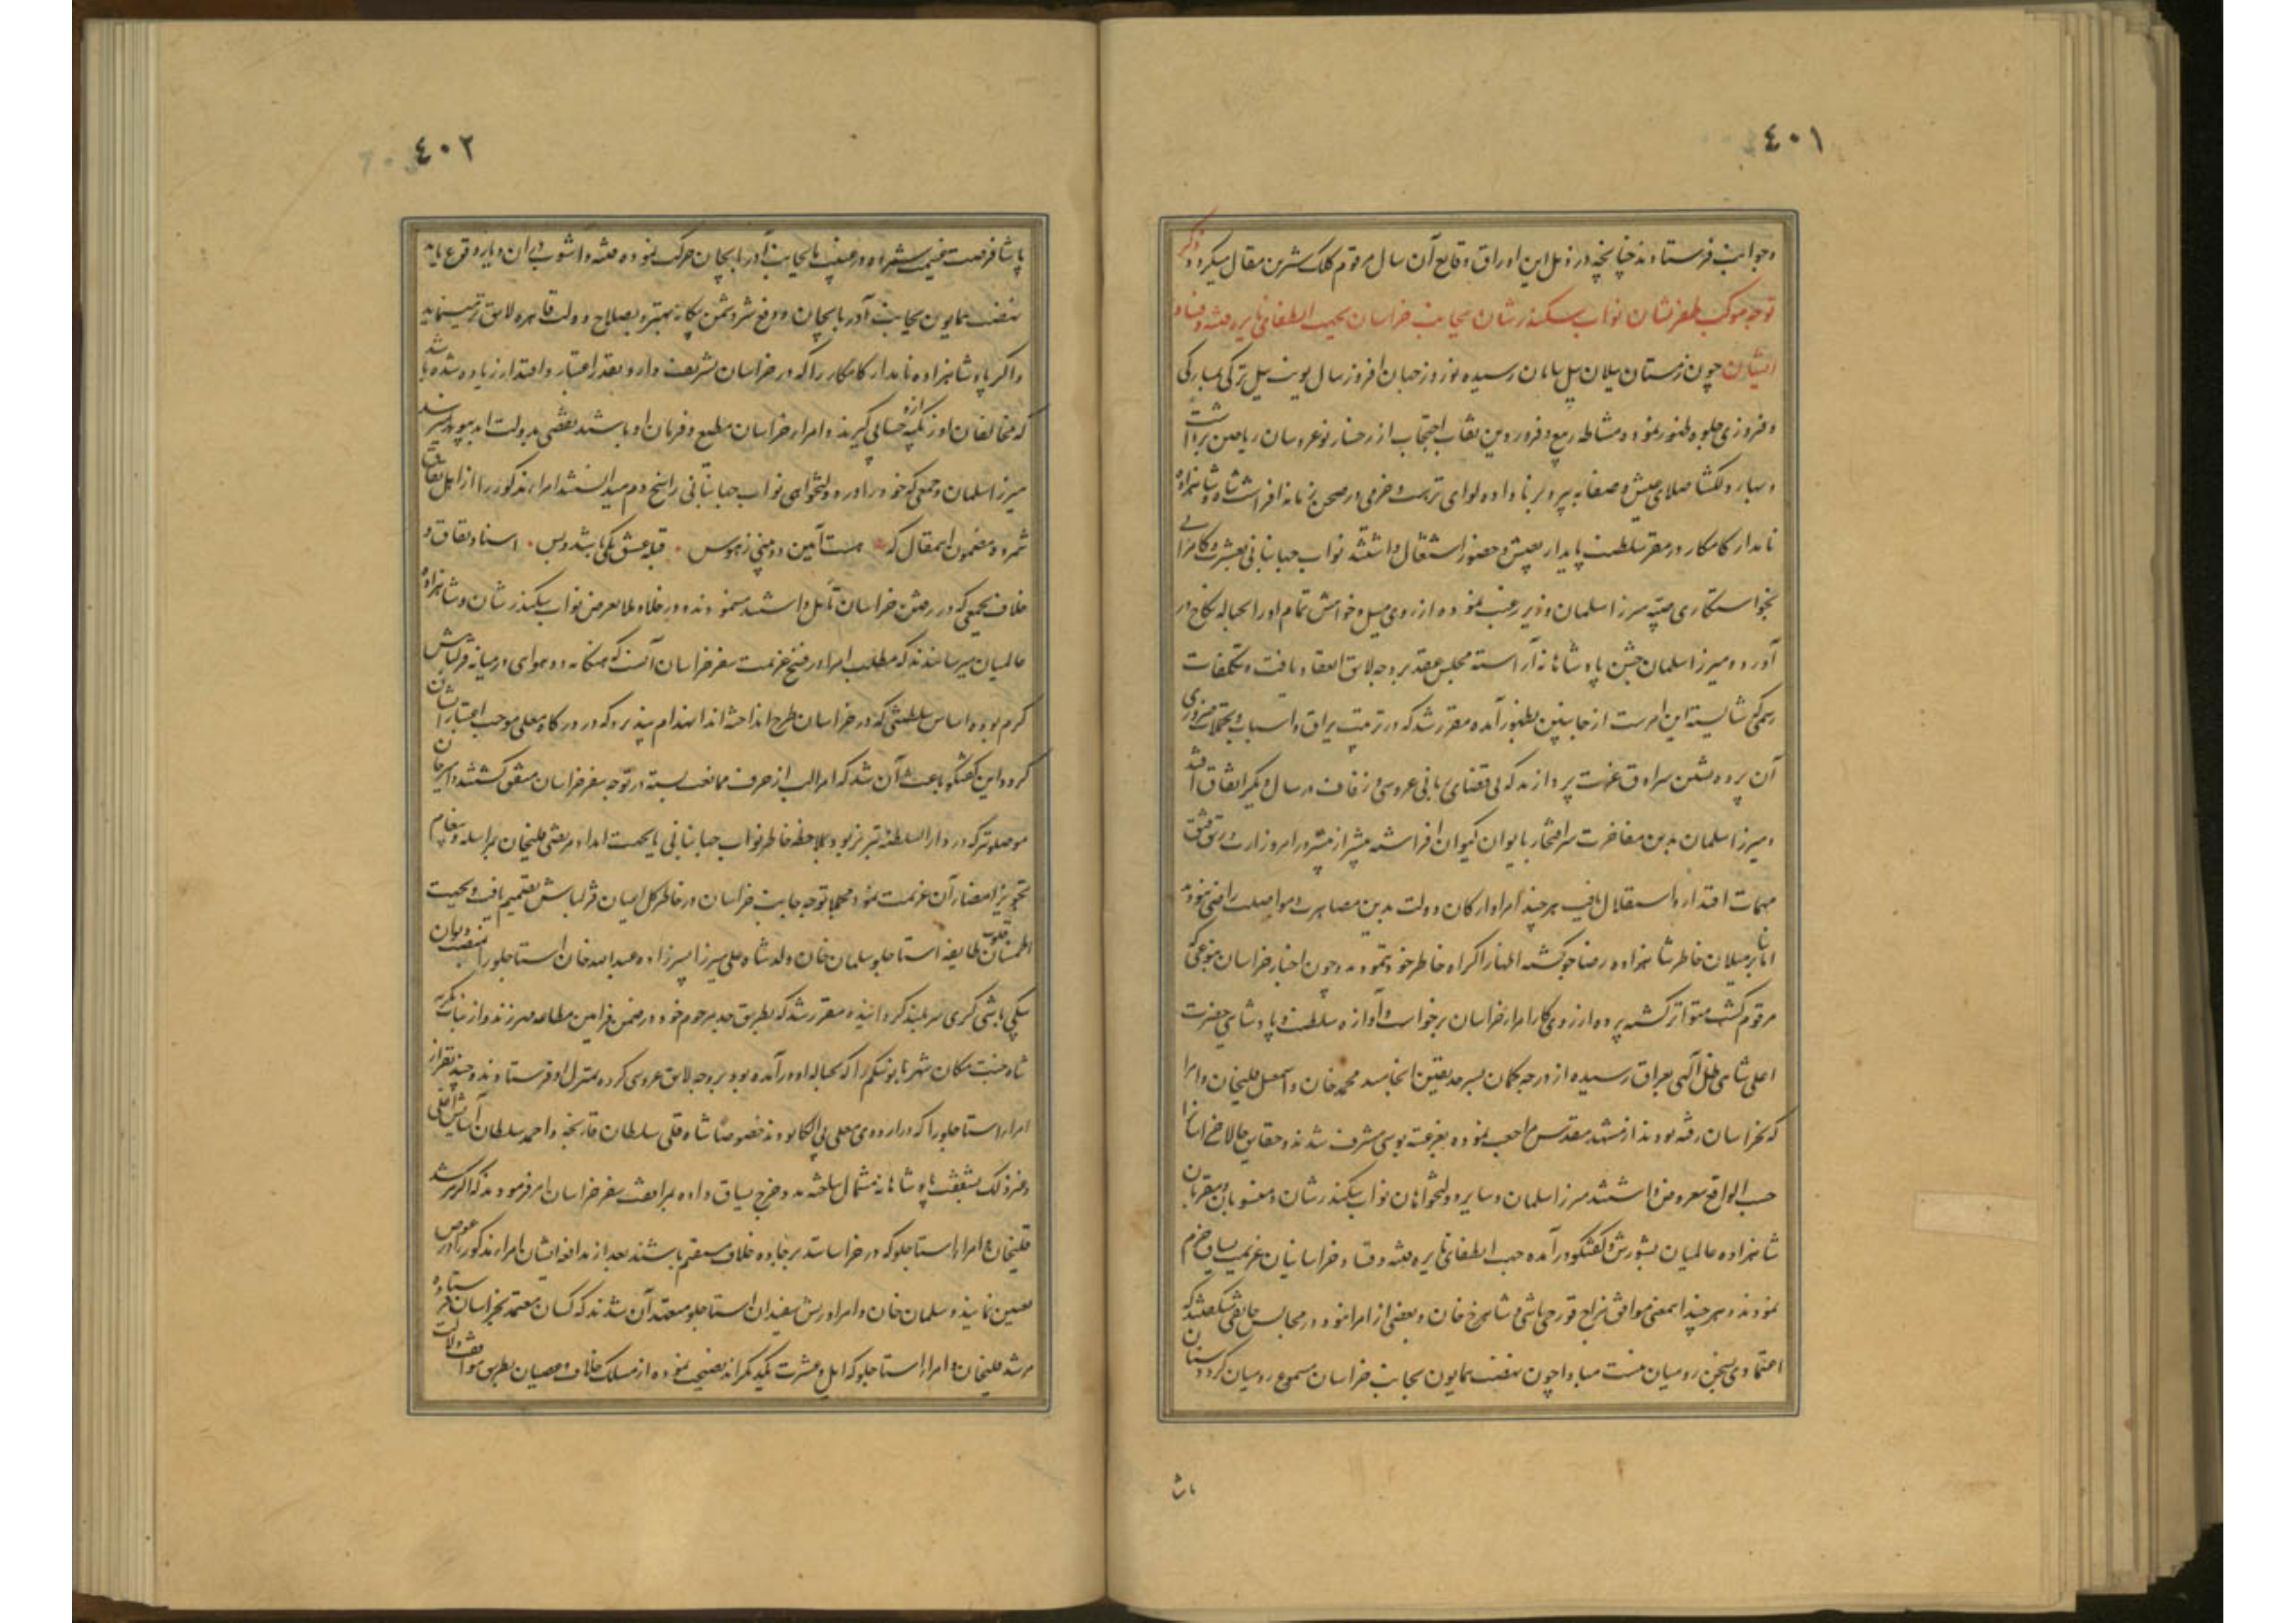 ٤٠١
و جواب فرستادند چنانچه در ذیل این اوراق وقایع آن سال مرقوم کلک شیرین مقال میگردد ذکر
توجه موکب ظفرنشان نواب سکندرشان بجانب خراسان بجهت اطفای نایره فتنه و فساد
ایشان چون زمستان ییلان ییل بپایان رسیده نوروز جهان افروز سال یونت ییل ترکی بمبارکی
و فیروزی جلوه ظهور نموده مشاطه ربیع و فروردین نقاب احتجاب از رخسار نوعروسان ریاحین برداشت
و بهار دلگشا صلای عیش و صفا به پیر و برنا داده لوای نزهت و خرمی در صحن زمانه افراشت شاه و شاهزاده
نامدار کامکار در مقر سلطنت پایدار بعیش و حضور اشتغال داشتند نواب جهانبانی بعشرت و کامرانی
بخواستگاری صبیه میرزا سلمان وزیر رغبت نموده از روی میل و خواهش تمام او را بحباله نکاح در
آورد و میرزا سلمان جشن پادشاهانه آراسته مجلس عقد بر وجه لایق انعقاد یافت و تکلفات
رسمی که شایسته این امر است از جانبین بظهور آمده مقرر شد که در ترتیب یراق و اسباب و تجملات ضروری
آن پرده نشین سرادق عزت پردازند که بی قضای ربانی عروسی و زفاف در سال دیگر اتفاق افتد
و میرزا سلمان بدین مفاخرت سر افتخار بایوان کیوان افراشته بیشتر از پیشتر در امر وزارت و رتق و فتق
مهمات اقتدار و استقلال یافت هر چند امرا و ارکان دولت بدین مصاهرت و مواصلت راضی نبودند
اما بنابر میلان خاطر شاهزاده رضاجو گشته اظهار اکراه خاطر خود ننمودند و چون اخبار خراسان بنوعی که
مرقوم گشت متواتر گشته پرده از روی کار امرار خراسان برخواست و آوازه سلطنت و پادشاهی حضرت
اعلی شاهی ظل الهی بعراق رسیده از درجه گمان بسرحد یقین انجامید محمد خان و اسمعیل قلیخان و امرا
که بخراسان رفته بودند از مشهد مقدس مراجعت نموده بعز عتبه بوسی مشرف شدند و حقایق حالات خراسانرا
حسب الواقع معروض داشتند میرزا سلمان و سایر دولتخواهان نواب سکندرشان و منسوبان و مقربان
شاهزاده عالمیان بشورش و گفتگو درآمده جهت اطفای نایره فتنه و فساد خراسانیان عزیمت یساق جزم
نمودند و هر چند اینمعنی موافق مزاج قورچی باشی و شاهرخ خان و بعضی از امرا نبود و در مجالس جانقی میگفتند که
اعتمادی بسخن رومیان نیست مبادا چون نهضت همایون بجانب خراسان مسموع رومیان گردد سنان
پاشا
٤٠٢
پاشا فرصت غنیمت شمرده در غیبت ما بجانب آذربایجان حرکت نموده فتنه و آشوب در آن دیار وقوع یابد
نهضت همایون بجانب آذربایجان و دفع شر دشمن بیگانه بهتر و بصلاح دولت قاهره لایق تر مینماید
و اگر پادشاهزاده نامدار کامکار را که در خراسان تشریف دارد بقدر اعتبار و اقتدار زیاده شده باشد
که مخالفان اوزبکیه از او حسابی گیرند و امرار خراسان مطیع و فرمان او باشند نقصی بدولت ابد پیوند نمیرسد
میرزا سلمان و جمعی که خود را در دولتخواهی نواب جهانبانی راسخ دم میدانستند امراء مذکور را از اهل نفاق
شمرده مضمون اینمقال که هست آیین دو بینی ز هوس قبله عشق یکی باشد و بس اسناد نفاق و
خلاف بجمعی که در رفتن خراسان تأمل داشتند مینمودند و در خلا و ملا بعرض نواب سکندرشان و شاهزاده
عالمیان میرسانیدند که مطلب امرا در فسخ عزیمت سفر خراسان آنست که هنگامه دو هوائی در میانه قزلباش
گرم بوده اساس سلطنتی که در خراسان طرح انداخته اند انهدام نپذیرد که در درگاه معلی موجب اعتبار ایشان
گردد این گفتگو باعث آن شد که امرا لب از حرف ممانعت بسته در توجه سفر خراسان متفق گشتند امیر خان
موصلو ترکمان که در دار السلطنه تبریز بود بملاحظه خاطر نواب جهانبانی یا بجهت امداد مرتضی قلیخان بمراسله و پیغام
تجویز امضاء آن عزیمت نمود مجملا توجه جانب خراسان در خاطر کل اعیان قزلباش تصمیم یافت و بجهت
اطمینان قلوب طایفه استاجلو سلمان خان ولد شاه علی میرزا پسرزاده عبدالله خان استاجلو را بمنصب دیوان
بیکی باشی گری سربلند گردانیده مقرر شد که بطریق جد مرحوم خود در ضمن فرامین مطاعه مهر زند و از بنات مکرمه
شاه جنت مکان شهربانو بیکم را که بحباله او درآمده بود بر وجه لایق عروسی کرده بمنزل او فرستادند و چند نفر از
امراء استاجلو را که در اردوی معلی بی الکا بودند خصوصا شاه قلی سلطان قارنجه و احمد سلطان آسایش اغلی
و غیر ذلک بشفقت پادشاهانه مشمول ساخته مدد خرج یساق داده بمرافقت سفر خراسان امر فرمودند که اگر مرشد
قلیخان و امرار استاجلو که در خراسانند بر جاده خلاف مستقیم باشند بعد از مدافعه ایشان امراء مذکور را در عوض
تعیین نمایند و سلمان خان و امرا و ریش سفیدان استاجلو متعهد آن شدند که کسان معتمد بخراسان فرستاده
مرشد قلیخان و امرار استاجلو که ایل و عشیرت یکدیگراند نصیحت نموده از مسلک خلاف و عصیان بطریق موافقت دلالت